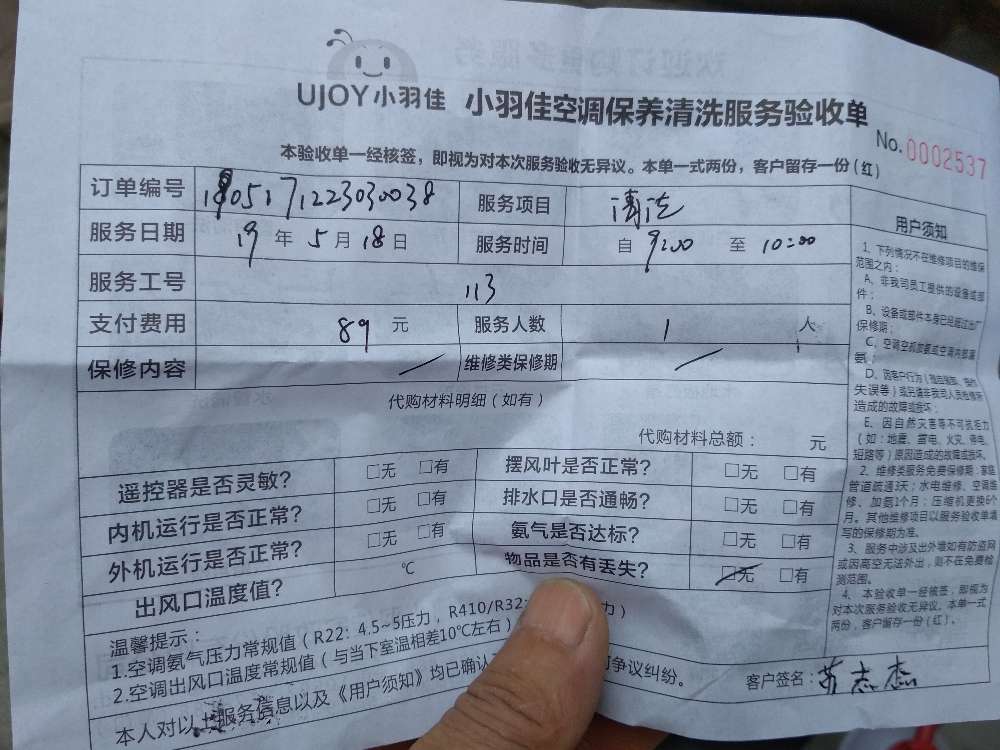 UJOY小羽佳 小羽佳空调保养清洗服务验收单
No.0002537
本验收单一经核签，即视为对本次服务验收无异议。本单一式两份，客户留存一份(红)
订单编号 190517122303038 服务项目 清洗
服务日期 19年5月18日 服务时间 自9:00至10:00
服务工号 113
支付费用 89元 服务人数 1人
保修内容 / 维修类保修期 /
代购材料明细（如有）
代购材料总额： 元
遥控器是否灵敏？ □无 □有 摆风叶是否正常？ □无 □有
内机运行是否正常？ □无 □有 排水口是否通畅？ □无 □有
外机运行是否正常？ □无 □有 氨气是否达标？ □无 □有
出风口温度值？ ℃ 物品是否有丢失？ □无 □有
温馨提示：
1.空调氨气压力常规值（R22：4.5~5压力，R410/R32: 力）
2.空调出风口温度常规值（与当下室温相差10℃左右）
本人对以上服务信息以及《用户须知》均已确认 争议纠纷。
客户签名：苏志杰
用户须知
1、下列情况不在维修项目的维保
范围之内：
A、非我司员工提供的设备或部
件；
B、设备或部件本身已经超过出厂
保修期；
C、空调空机加氨或空调内部漏
氨；
D、因客户行为（
失误等）或另请非我司人员检修所
造成的故障或损坏；
E、因自然灾害等不可抗拒力
（如：地震、雷电、火灾、停电、
短路等）原因造成的故障或损坏。
2、维修类服务免费保修期：家庭
管道疏通3天；水电维修、空调维
修、加氨1个月；压缩机更换6个
月。其他维修项目以服务验收单填
写的保修期为准。
3、服务中涉及出外墙如有防盗网
或因高空无法外出，则不在免费检
测范围。
4、本验收单一经核签，即视为
对本次服务验收无异议。本单一式
两份，客户留存一份(红)。